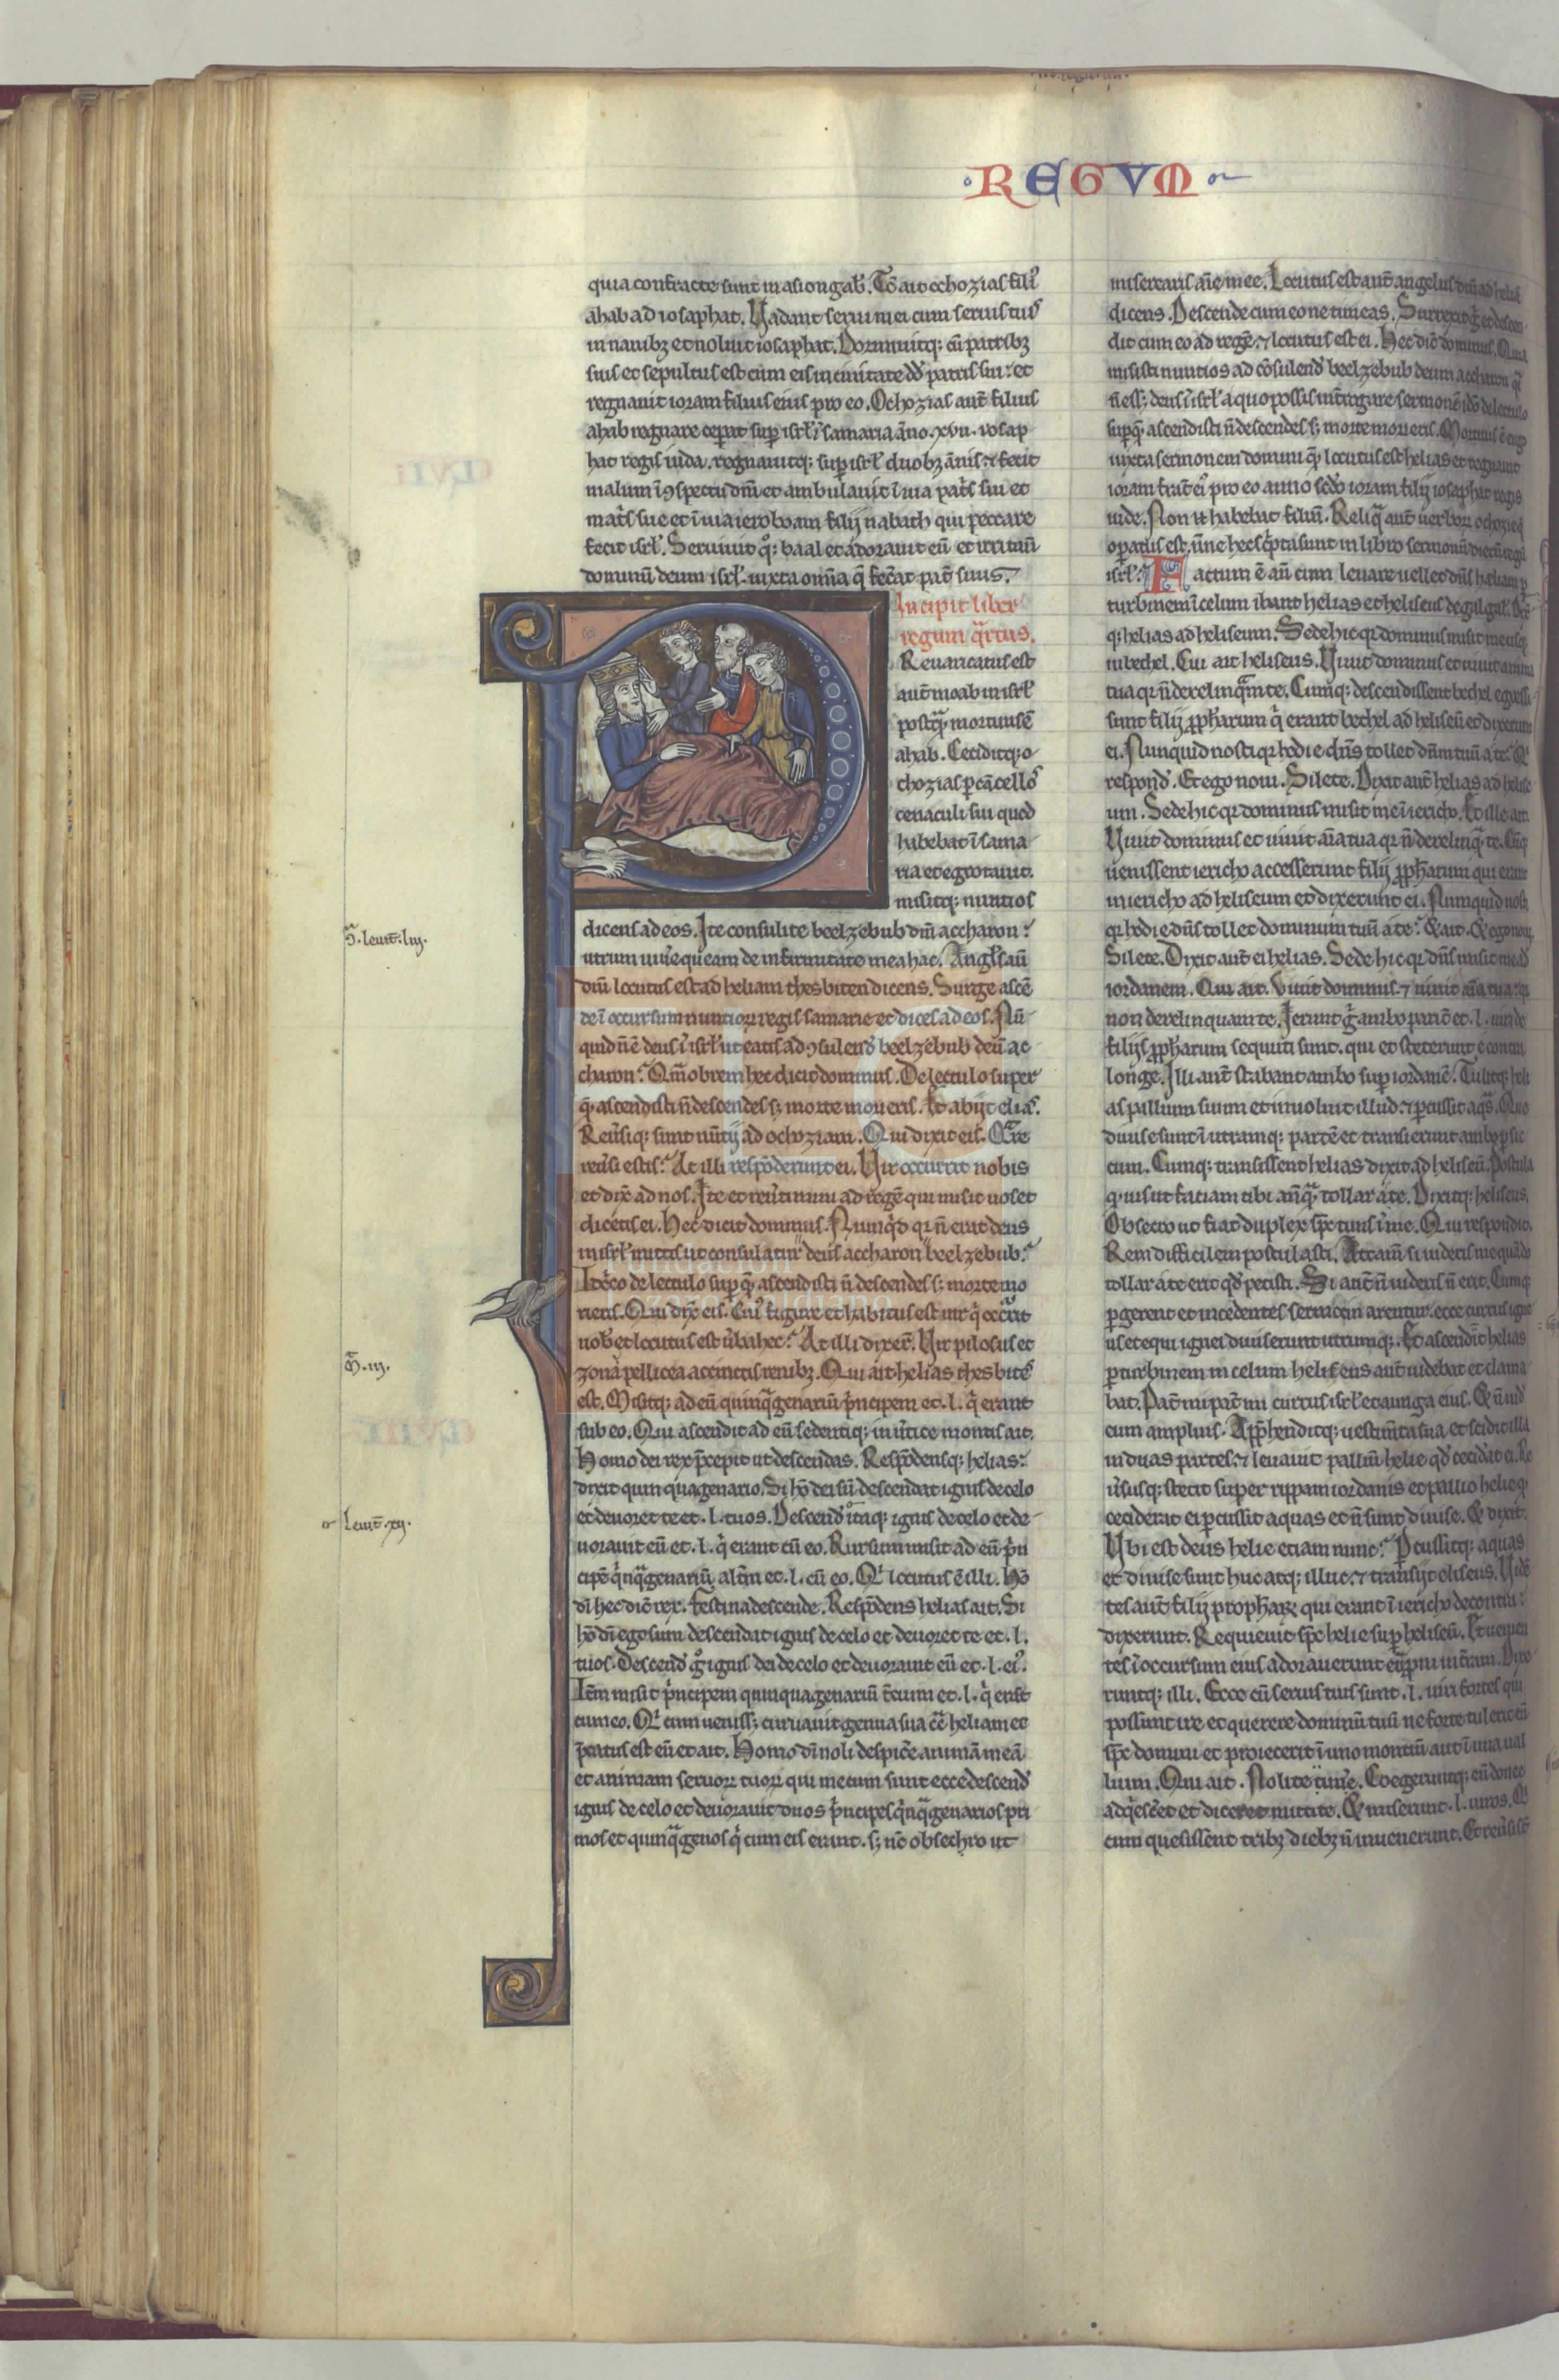 REGVM
quia confracte sunt in asiongab̾. Tc̄ ait ochozias filiꝰ
ahab ad iosaphat. Vadant serui mei cum seruis tuis
in nauibꝫ et noluit iosaphat. Dormiuitqꝫ cū patribꝫ
suis et sepultus est cum eis in ciuitate dd̾ patris sui: et
regnauit ioram filius eius pro eo. Ochozias aut̄ filius
ahab regnare ceperat suꝑ isrl̾ ī samaria āno .xvii. iosap
hat regis iuda. regnauitqꝫ suꝑ isrl̾ duobꝫ ānis. ⁊ fecit
malum ī ꝯspectu dn̄i et ambulauit ī uia pat̾s sui et
mat̾s sue et ī uia ieroboam filij nabath qui peccare
fecit isrl̾. Seruiuit qꝫ baal et adorauit eū et irritauit
dominū deum isrl̾. iuxta omīa q̄ fec̾at pat̾ suus.
Incipit liber
regum q̾rtus.
Reuaricatus est
aut̄ moab in isrl̾
postq̄ mortuus ē
ahab. Ceciditqꝫ o
chozias ꝑ cācellos
cenaculi sui quod
habebat ī sama
ria et egrotauit.
misitqꝫ nuntios
dicens ad eos. Ite consulite beelzebub dm̄ accharon:
utrum uiue queam de infirmitate mea hac. Angl̾s aū
dn̄i locutus est ad heliam thesbiten dicens. Surge ascē
de ī occursum nuntioꝝ regis samarie et dices ad eos. Nū
quid n̄ ē deus ī isrl̾ ut eatis ad ꝯsulend̾ beelzebub deū ac
charon? Qm̄obrem hec dicit dominus. De lectulo super
q̄ ascendisti n̄ descendes sꝫ morte morieris. Et abijt elias.
Reu̾siqꝫ sunt nūtij ad ochoziam. Qui dixit eis. Q̾re
reu̾si estis? At illi respōderunt ei. Vir occurrit nobis
et dix̄ ad nos. Ite et reu̾timini ad regē qui misit uos et
dicetis ei. Hec dicit dominus. Numq̾d qꝛ n̄ erat deus
in isrl̾ mittis ut consulatur deus accharon beelzebub?
Idc̾co de lectulo suꝑ q̄ ascendisti n̄ descendes sꝫ morte mo
rieris. Qui dix̄ eis. Cuiꝰ figure et habitus est uir q̾ occ̾rit
uob̾ et locutus est u̾ba hec? At illi dixer̄. Vir pilosus et
zona pellicea accinctis renibꝫ. Qui ait helias thesbites
est. Misitqꝫ ad eū quinq̾genariū p̾ncipem et .l. q̾ erant
sub eo. Qui ascendit ad eū sedentiqꝫ in u̾tice montis ait.
Homo dei rex p̄cepit ut descendas. Respōdensqꝫ helias:
dixit quinquagenario. Si hō dei sū descendat ignis de celo
et deuoret te et .l. tuos. Descend̾ itaqꝫ ignis de celo et de
uorauit eū et .l. q̾ erant cū eo. Rursum misit ad eū p̾n
cipē q̾nq̾genariū alt̾m et .l. cū eo. Qi locutus ē illi. Hō
dī hec dic̄ rex. festina descende. Respōdens helias ait. Si
hō dī ego sum descendat ignis de celo et deuoret te et .l.
tuos. Descend̾ g̊ ignis dei de celo et deuorauit eū et .l. eiꝰ.
Itē misit p̾ncipem quinquagenariū t̾cium et .l. q̾ erāt
cum eo. Qi cum uenissꝫ curuauit genua sua cōt̾ heliam et
p̄catus est eū et ait. Homo dī noli despic̾e animā meā
et animam seruoꝝ tuoꝝ qui mecum sunt ecce descend̾
ignis de celo et deuorauit duos p̾ncipes q̾nq̾genarios pri
mos et quinq̾genos q̾ cum eis erant. sꝫ nc̄ obsechro ut
miserearis aīe mee. Locutus est aut̄ angelus dn̄i ad heliā
dicens. Descende cum eo ne timeas. Surrexit g̊ et descen
dit cum eo ad regē. ⁊ locutus est ei. Hec dic̄ dominus. Quia
misisti nuntios ad cōsulend̾ beelzebub deum accharon q̾
n̄ essꝫ deus ī isrl̾ a quo possis int̾rogare sermonē ido̾ de lectulo
suꝑ q̄ ascendisti n̄ descendes sꝫ morte morieris. Mortuus ē ergo
iuxta sermonem domini q̄ locutus est helias et regnauit
ioram frat̾ eiꝰ pro eo anno sc̄do ioram filij iosaphat regis
iude. Non .n. habebat filiū. Reliq̾ aut̄ uerboꝝ ochozie q̄
oꝑatus est. n̄ne hec sc̾pta sunt in libro sermonū dierū regū
isrl̾. Factum ē aū cum leuare uellet dn̄s heliam ꝑ
turbinem ī celum ibant helias et heliseus de galgal. Dix̄
qꝫ helias ad heliseum. Sede hic qꝛ dominus misit me usqꝫ
in bethel. Cui ait heliseus. Viuit dominus et uiuit anima
tua qꝛ n̄ derelinq̄m te. Cumqꝫ descendissent bethel egressi
sunt filij ꝓpharum q̾ erant bethel ad heliseū et dixerunt
ei. Nunquid nosti qꝛ hodie dn̄s tollet dn̄m tuū a te? Qi
respond̾. Et ego noui. Silete. Dixit aut̄ helias ad helise
um. Sede hic qꝛ dominus misit me ī iericho. Et ille ait.
Viuit dominus et uiuit aīa tua qꝛ n̄ derelinq̄ te. Cūqꝫ
uenissent iericho accesserunt filij ꝓpharum qui erant
in iericho ad heliseum et dixerunt ei. Numquid nosti
qꝛ hodie dn̄s tollet dominum tuū a te? Et ait. Et ego noui.
Silete. Dixit aut̄ ei helias. Sede hic qꝛ dn̄s misit me ad
iordanem. Qui ait. Viuit dominus. ⁊ uiuit aīa tua qꝛ
non derelinquam te. Ierunt g̊ ambo parit̾ et .l. uiri de
filijs ꝓpharum sequuti sunt. qui et steterunt e contra
longe. Illi aut̄ stabant ambo suꝑ iordanē. Tulitqꝫ heli
as pallium suum et inuoluit illud. ⁊ percussit aq̾s. Que
diuise sunt ī utramqꝫ partē et transierunt ambo ꝑ sic
cum. Cumqꝫ transissent helias dixit ad heliseū. Postula
q̾ uis ut faciam tibi an̄q̾ tollar a te. Dixitqꝫ heliseus.
Obsecro ut fiat duplex sp̄c tuus ī me. Qui respondit.
Rem difficilem postulasti. Attam̄ si uideris me quādo
tollar a te erit qd̾ petisti. Si aut̄ n̄ uideris n̄ erit. Cumqꝫ
ꝑgerent et incedentes sermocinarentur. ecce currus igne
us et equi ignei diuiserunt utrumqꝫ. Et ascendit helias
ꝑ turbinem in celum heliseus aut̄ uidebat et clama
bat. Pat̾ mi pat̾ mi currus isrl̾ et auriga eius. Et n̄ uid̾
eum amplius. App̄henditqꝫ uestim̄ta sua et scidit illa
in duas partes. ⁊ leuauit palliū helie qd̾ cecid̾at ei. Re
u̾susqꝫ stetit super rippam iordanis et pallio helie q̄
ceciderat ei ꝑcussit aquas et n̄ sunt diuise. Et dixit.
Vbi est deus helie etiam nunc? Ꝑcussitqꝫ aquas
et diuise sunt huc atqꝫ illuc. ⁊ transijt eliseus. Vidē
tes aut̄ filij prophaꝝ qui erant ī iericho de contra:
dixerunt. Requieuit sp̄c helie suꝑ heliseū. Et uenien
tes ī occursum eius adorauerunt eū ꝓni in t̾ram. Dixe
runtqꝫ illi. Ecce cū seruis tuis sunt .l. uiri fortes qui
possunt ire et querere dominū tuū ne forte tulerit eū
sp̄c domini et proiecerit ī uno montiū aut ī una ual
lium. Qui ait. Nolite mitt̾e. Coegeruntqꝫ eū donec
adq̾esc̾et et diceret mittite. Et miserunt .l. uiros. Qi
cum quesissent tribꝫ diebꝫ n̄ inuenerunt. Et reu̾si sūt
leuit̄. liij.
leuit̄. xij.